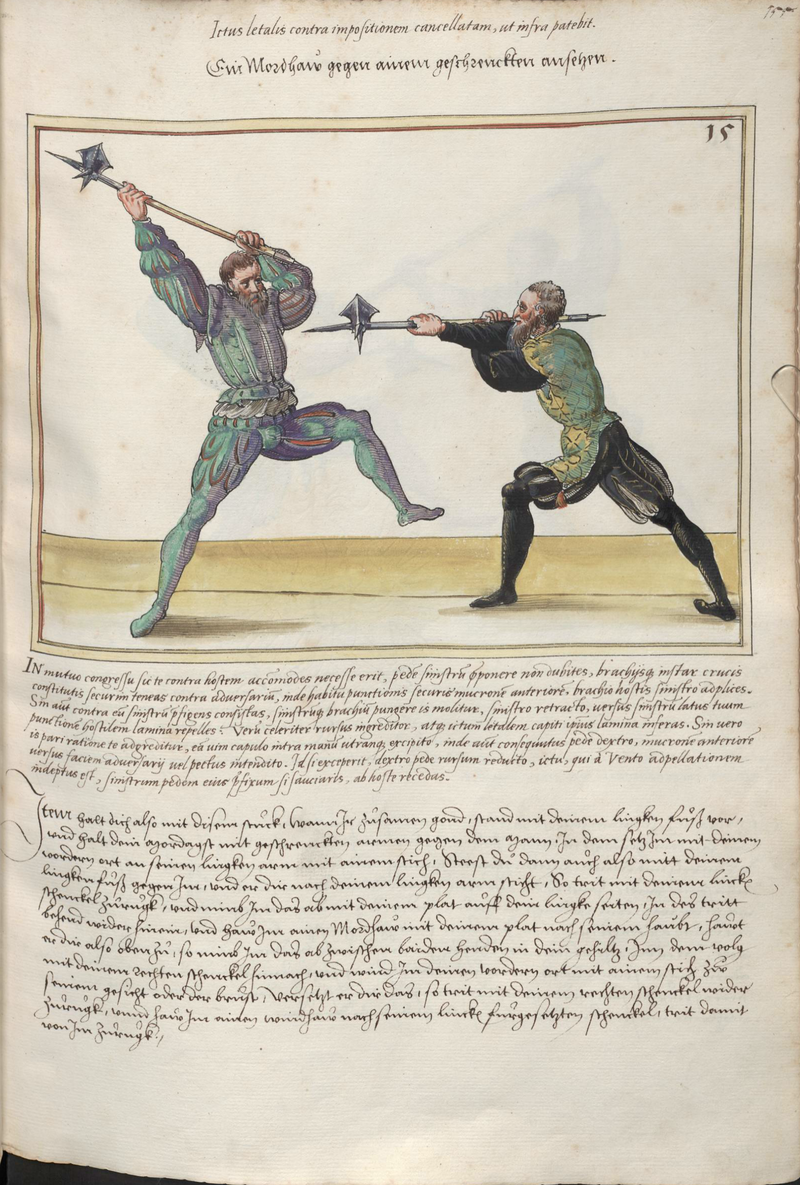 Ictus letalis contra impositionem cancellatam, ut infra patebit.
Ein Mordhaw gegen ainem geschrenckten ansetzen.
15
IN mutuo congressu sic te contra hostem accommodes necesse erit, pede sinistrū opponere non dubites, brachijsq₃ instar crucis
constitutis securim teneas contra adversariū, inde habitu punctionis securis mucrone anteriore, brachio hostis sinistro adplices.
Sin aūt contra eū sinistrū p̄figens consistas, sinistrūq₃ brachiū pungere is molitur, sinistro retracto, versus sinistrū latus tuum
punctionē hostilem lamina repelles. Verū celeriter rursus ingreditor, atq₃ ictum letalem capiti ipsius lamina inferas. Sin vero
is pari ratione te adgreditur, eā uim capulo intra manū utranq₃ excipito, inde aūt consequutus pede dextro, mucrone anteriore
versus faciem adversarij vel pectus intendito. Id si exceperit, dextro pede rursum reducto, ictu, qui à Vento adpellationem
indeptus est, sinistrum pedem eius p̄fixum si sauciaris, ab hoste recedas.
Item halt dich also mit disem stuck, wann Ir zůsamen gond, stand mit deinem lingken fůß vor,
und halt dein mordagst mit geschrenckten armen gegen dem Mann, In dem setz Im mit deinem
vordern ort an seinen lingken arm mit ainem stich, Steest du dann auch also mitt deinem
lingken fůß gegen Im, und er dir nach deinem lingken arm sticht, So trit mit deinem lincken
schenckel zůrugk, und nimb Im das ab mit deinem plat auff dein lingke seiten, In des tritt
behend wider hinein, und haw Im ainen Mordhaw mit deinem plat nach seinem haubt, hawt
er dir also oben zů, so nimb Im das ab zwischen baiden henden in dein gehiltz, Inn dem volg
mit deinem rechten schenckel hinnach, und wind Im deinen vordern ort mit ainem stich zů
seinem gesicht oder der brust, Versetzt er dir das, so trit mit deinem rechten schenckel wider
zůrugk, unnd haw Im ainen windhaw nach seinem lincken fürgesetzten schenckel, trit damit
von Im zůrugk.